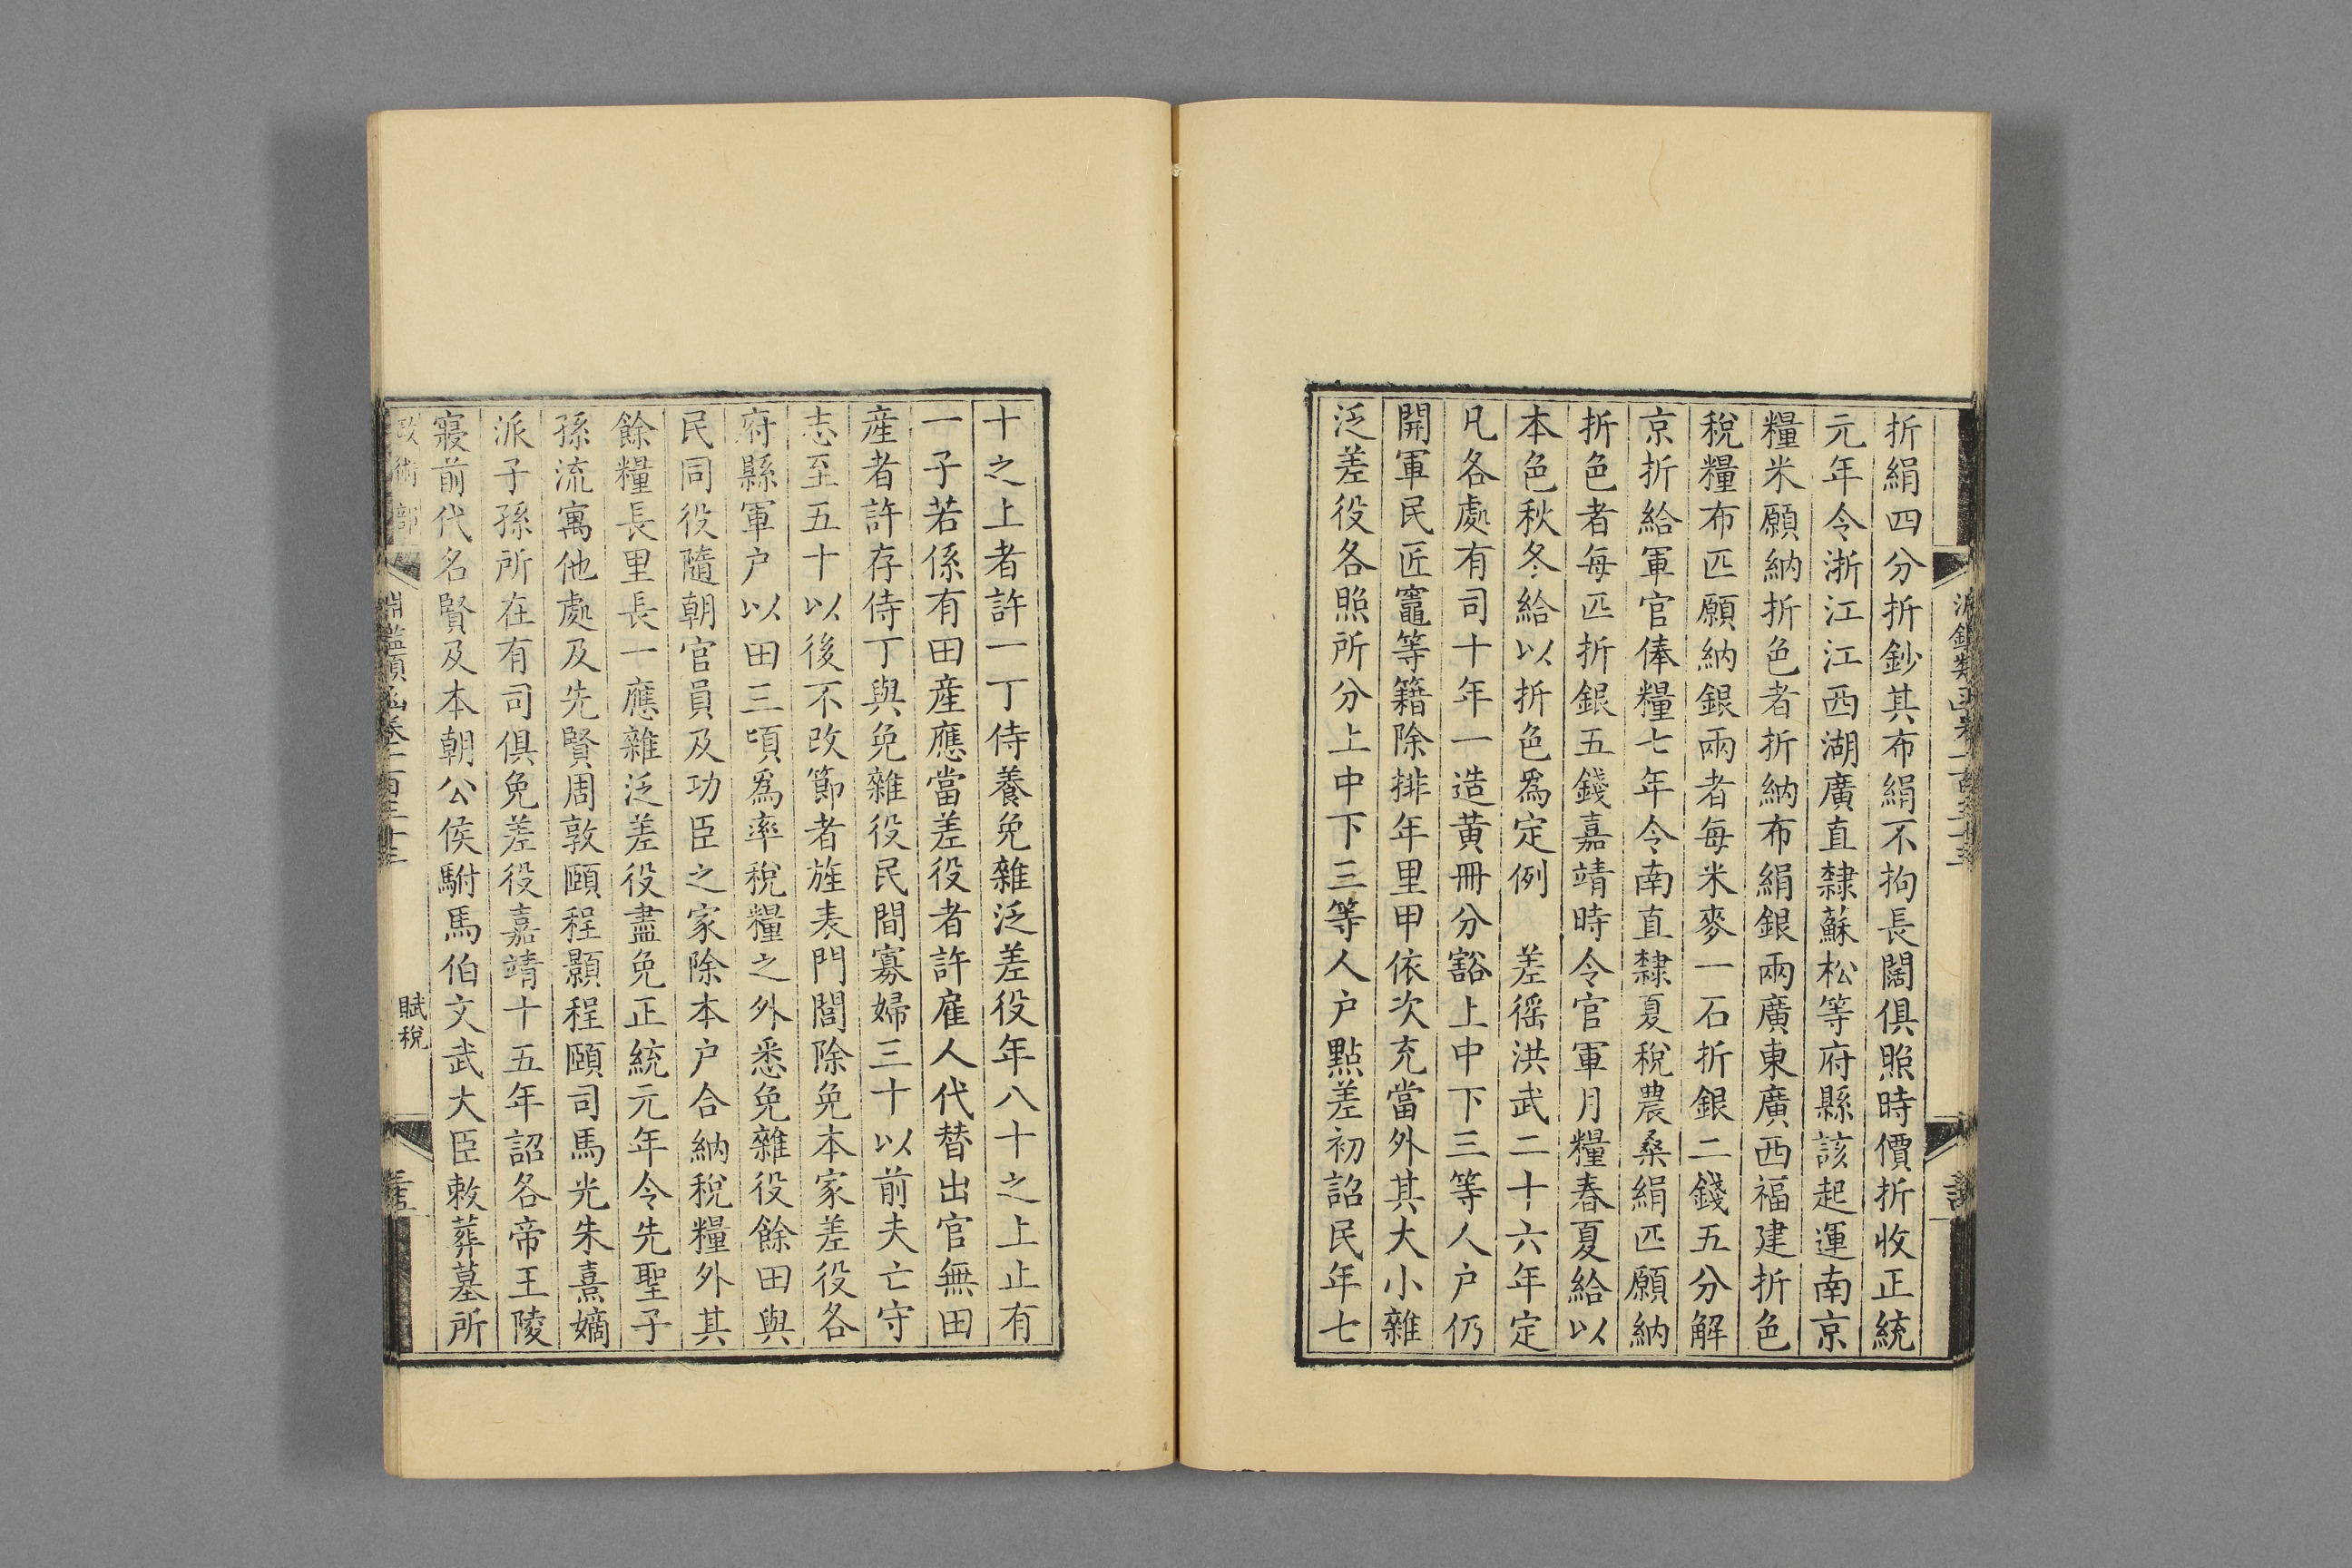 折絹四分折鈔其布絹不拘長闊俱照時價折收正統
元年令浙江江西湖廣直隸蘇松等府縣該起運南京
糧米願納折色者折納布絹銀兩廣東廣西福建折色
稅糧布匹願納銀兩者每米麥一石折銀二錢五分解
京折給軍官俸糧七年令南直隸夏稅農桑絹匹願納
折色者每匹折銀五錢嘉靖時令官軍月糧春夏給以
本色秋冬給以折色爲定例　差徭洪武二十六年定
凡各處有司十年一造黄冊分豁上中下三等人户仍
開軍民匠竈等籍除排年里甲依次充當外其大小雜
泛差役各照所分上中下三等人户點差初詔民年七
十之上者許一丁侍養免雜泛差役年八十之上止有
一子若係有田産應當差役者許雇人代替出官無田
産者許存侍丁與免雜役民間寡婦三十以前夫亡守
志至五十以後不改節者旌表門閭除免本家差役各
府縣軍户以田三頃爲率稅糧之外悉免雜役餘田與
民同役隨朝官員及功臣之家除本户合納稅糧外其
餘糧長里長一應雜泛差役盡免正統元年令先聖子
孫流寓他處及先賢周敦頤程顥程頤司馬光朱熹嫡
派子孫所在有司俱免差役嘉靖十五年詔各帝王陵
寢前代名賢及本朝公侯駙馬伯文武大臣敕葬墓所
政術部
淵鑑類函卷一百三十三
賦稅